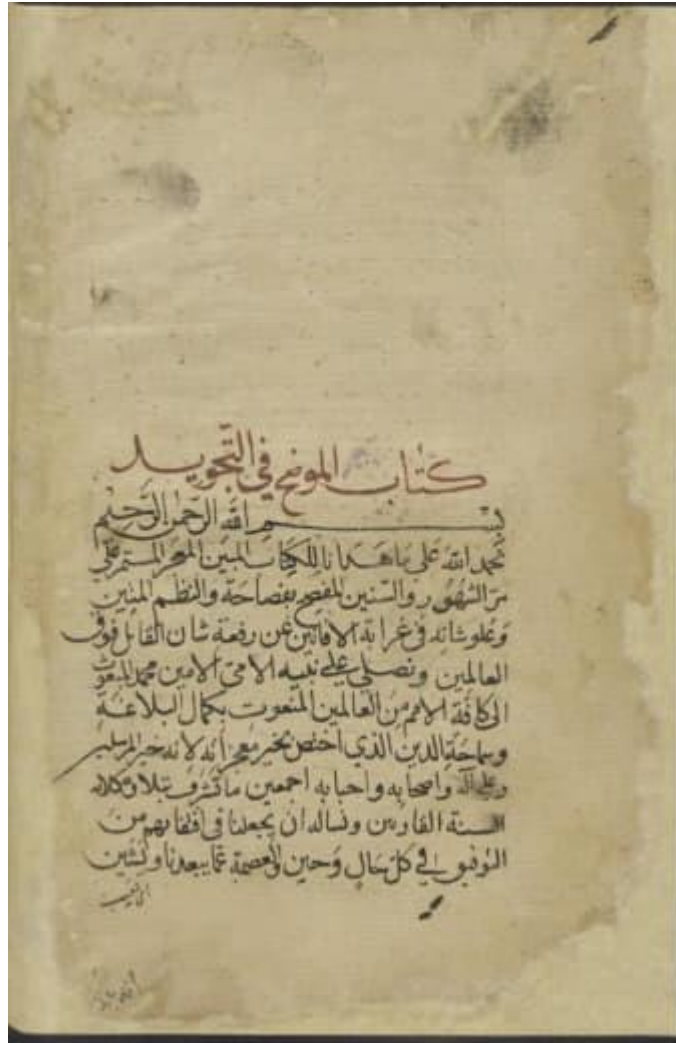 كتاب الموضح في التجويد
بسم الله الرحمن الرحيم
نحمد الله على ما هدانا للكتاب المبين المعجز المستمر على
مر الشهور والسنين المفصح بفصاحة والنظم المتين
وعلو شانه في غرابة الافانين عن رفعة شان القايل فوق
العالمين ونصلي على نبيه الامي الامين محمد المبعوث
الى كافة الامم من العالمين المنعوت بكمال البلاغة
وسماحة الدين الذي اختص بخير معجز انه لانه خير المرسلين
وعلى آله واصحابه واحبابه اجمعين ما تشرف بتلاوة كلامه
السنة القارين ونساله ان يجعلنا في اقتفايهم من
التوفيق في كل حال وحين والعصمة عما يبعدنا ويشين